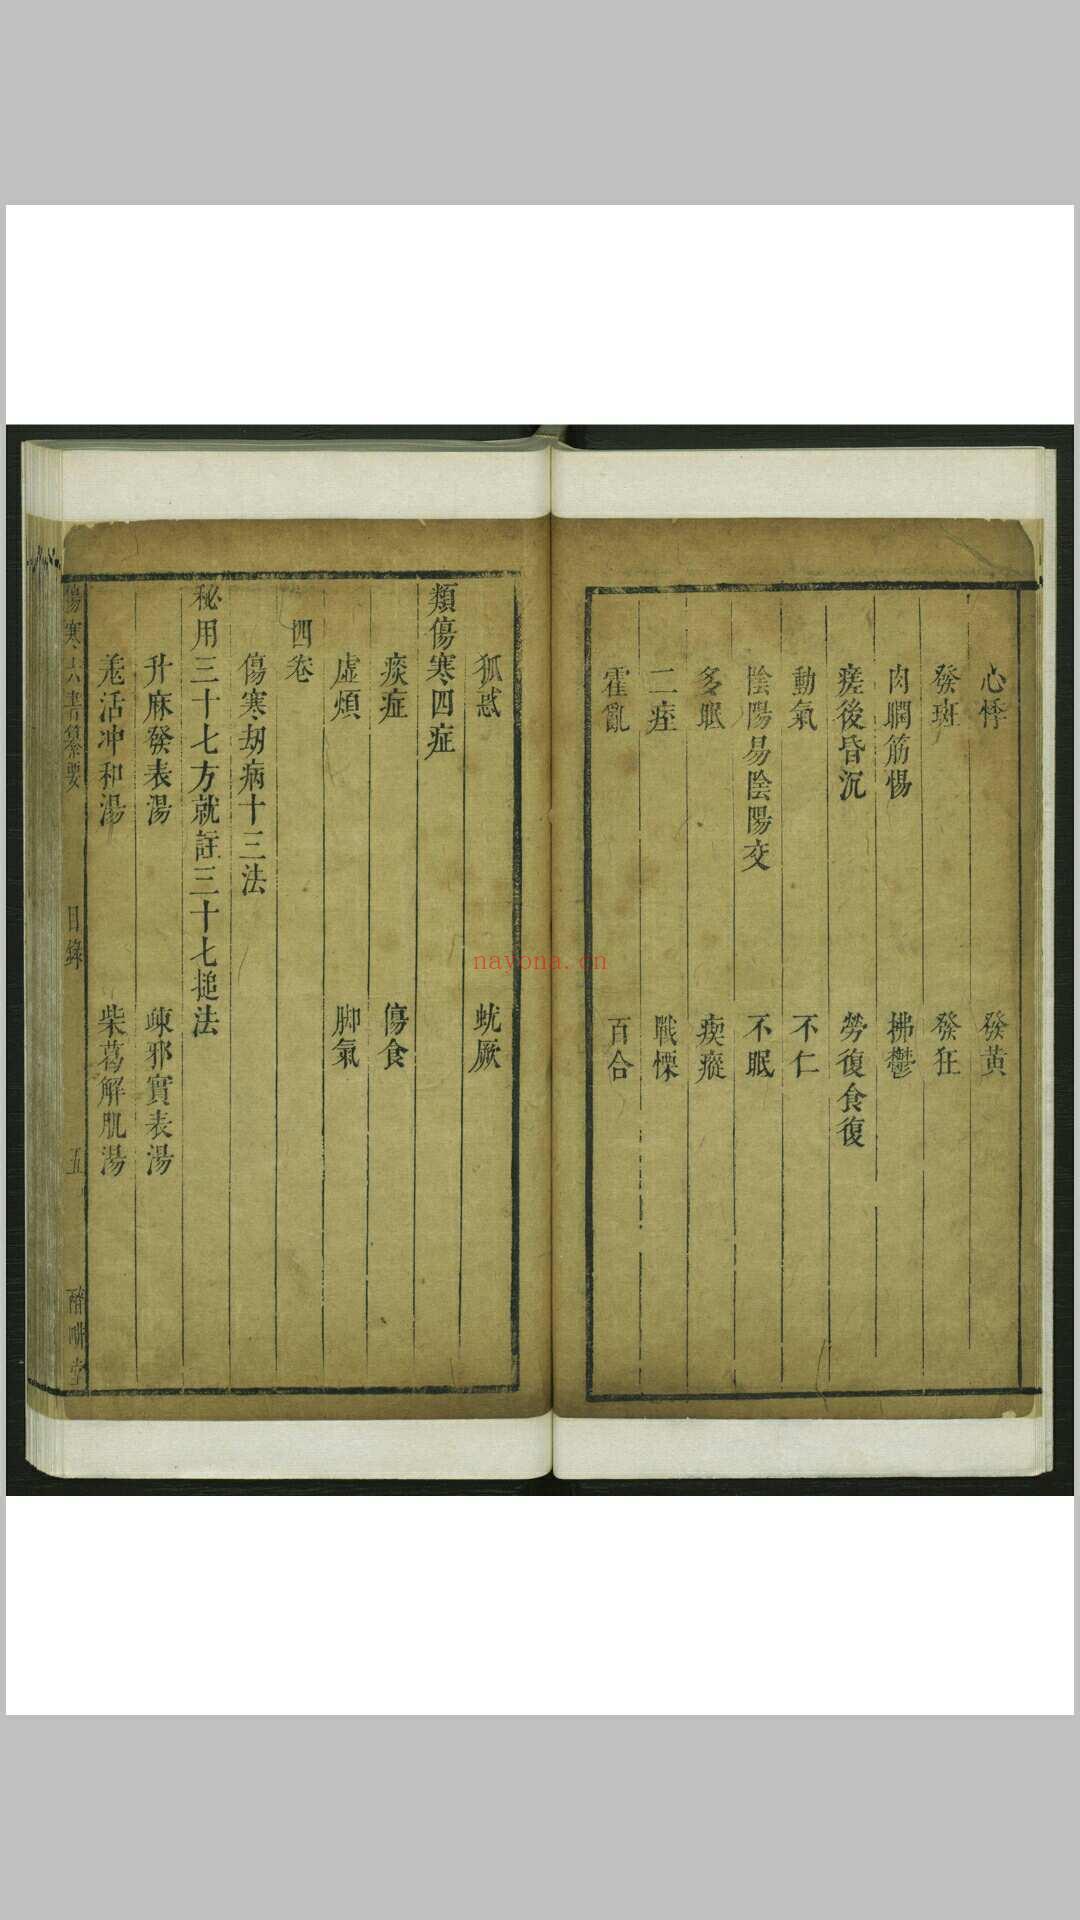 心悸　發黃
發斑　發狂
肉瞤筋惕　拂鬱
瘥後昏沉　勞復食復
動氣　不仁
陰陽易陰陽交　不眠
多眠　瘈瘲
二痓　戰慄
霍亂　百合
狐惑　蚘厥
類傷寒四症
痰症　傷食
虛煩　脚氣
四卷
傷寒劫病十三法
秘用三十七方就註三十七搥法
升麻發表湯　疎邪實表湯
羗活冲和湯　柴葛解肌湯
傷寒六書纂要　目錄　五　堂
nayona.cn